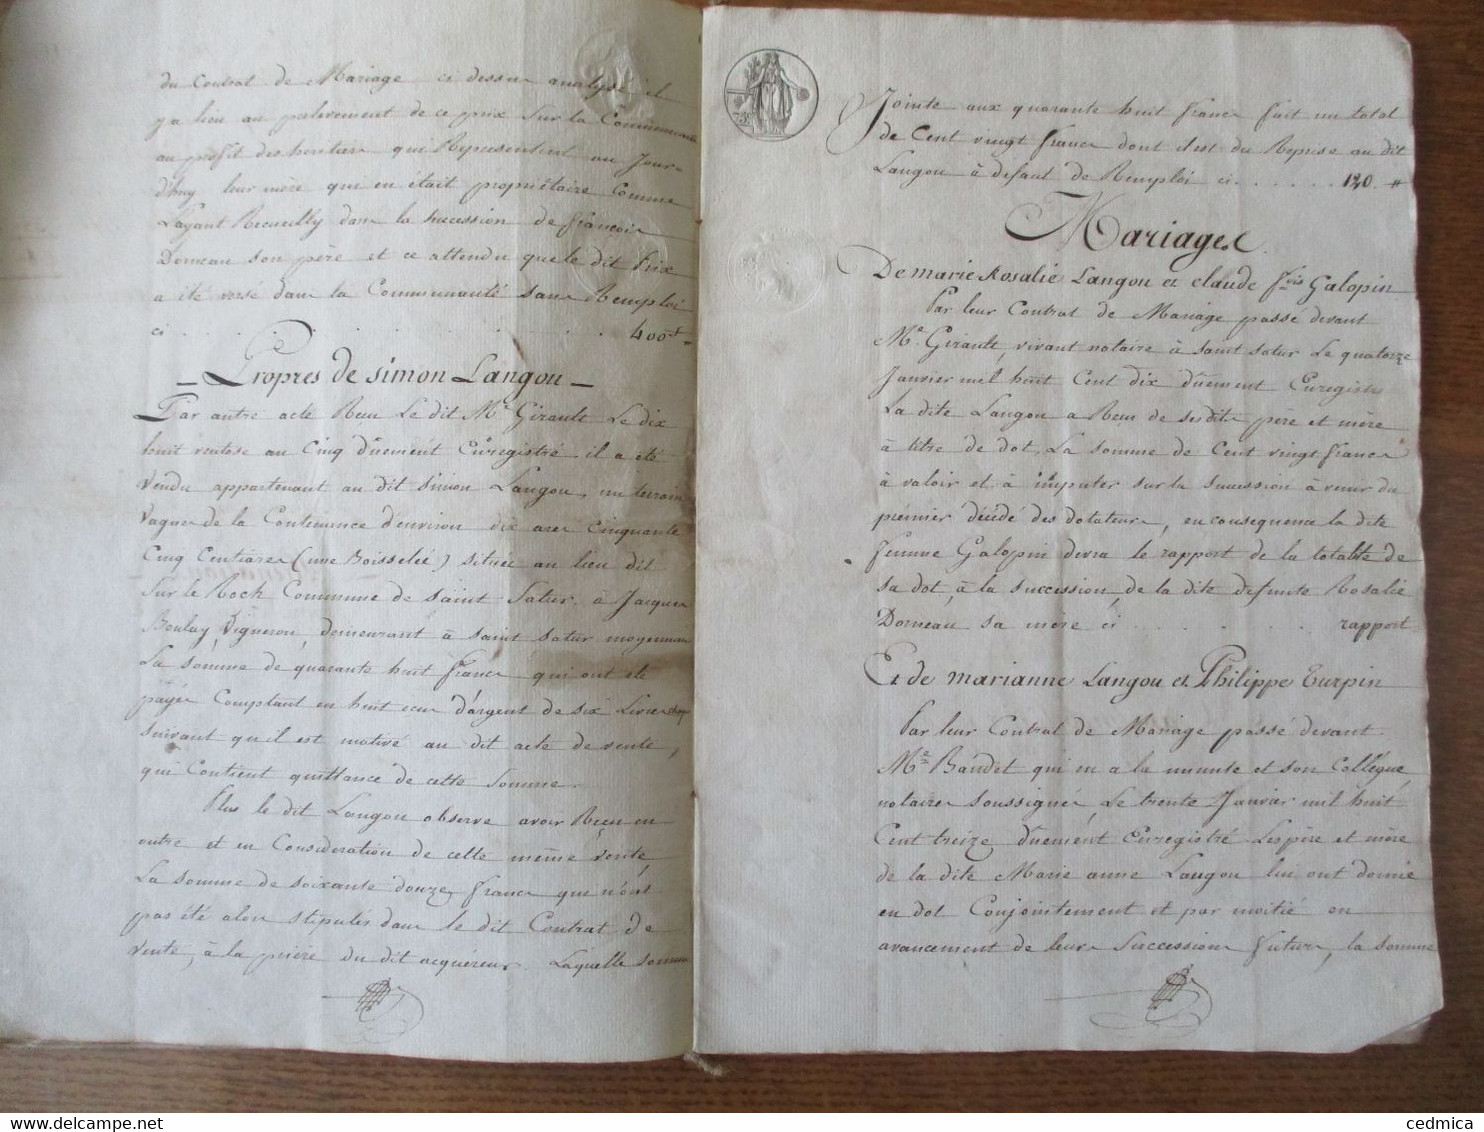 du Contrat de Mariage ci dessus analysé il
y a lieu au prélevement de ce prix sur la Communauté
au profit des héritiers qui Représentent au Jour-
d'huy leur mère que en était propriétaire Comme
L'ayant Recueilly dans la succession de françois
Dorneau son père et ce attendu que le dit Prix
a été versé dans la Communauté sans Remploi
ci . . . . . . . . . . 400 "
Propres de Simon Langou
Par autre acte Reçu Le dit Me Girault Le dix
huit ventose an Cinq duement Enregistré il a été
vendu appartenant au dit Simon Langou, un terrain
vague de la Contenance d'environ dix ares Cinquante
Cinq Centiares (une Boisselée) située au lieu dit
Sur le Rock Commune de Saint Satur à Jacques
Boulay Vigneron, demeurant à Saint Satur moyennant
La somme de quarante huit francs qui ont été
payés Comptant en huit ecus d'argent de six Livres chaq
suivant qu'il est motivé au dit acte de vente,
qui Contient quittance de cette Somme.
Plus le dit Langou observe avoir Reçu en
outre et en Considération de cette même vente,
La somme de soixante douze francs qui n'ont
pas été alors stipulés dans le dit Contrat de
vente, à la prière du dit acquéreur. Laquelle somme
73
Jointe aux quarante huit francs fait un total
de Cent vingt francs dont il est du Reprise au dit
Langou à défaut de Remploi ci . . . . . . 120 "
Mariages
De marie Rosalie Langou et claude fois Galopin
Par leur Contrat de Mariage passé devant
Me Girault, vivant notaire à Saint Satur Le quatorze
Janvier mil huit Cent dix duement Enregistré
La dite Langou a Reçu de ses dits père et mère
à titre de dot, La somme de Cent vingt francs
à valoir et à imputer sur la succession à venir du
premier décédé des dotateurs, en conséquence la dite
femme Galopin devra le rapport de la totalité de
sa dot, à la succession, de la dite defunte Rosalie
Dorneau sa mère ci . . . . . . . rapport
Et de marianne Langou et Philippe Turpin
Par leur Contrat de Mariage passé devant
Me Baudet qui en a la minute et son Collégue,
notaires soussignés, Le trente Janvier mil huit
Cent treize duement Enregistré Les père et mère
de la dite Marie anne Langou lui ont donné
en dot Conjointement et par moitié en
avancement de leurs successions futures, la somme
cedmica